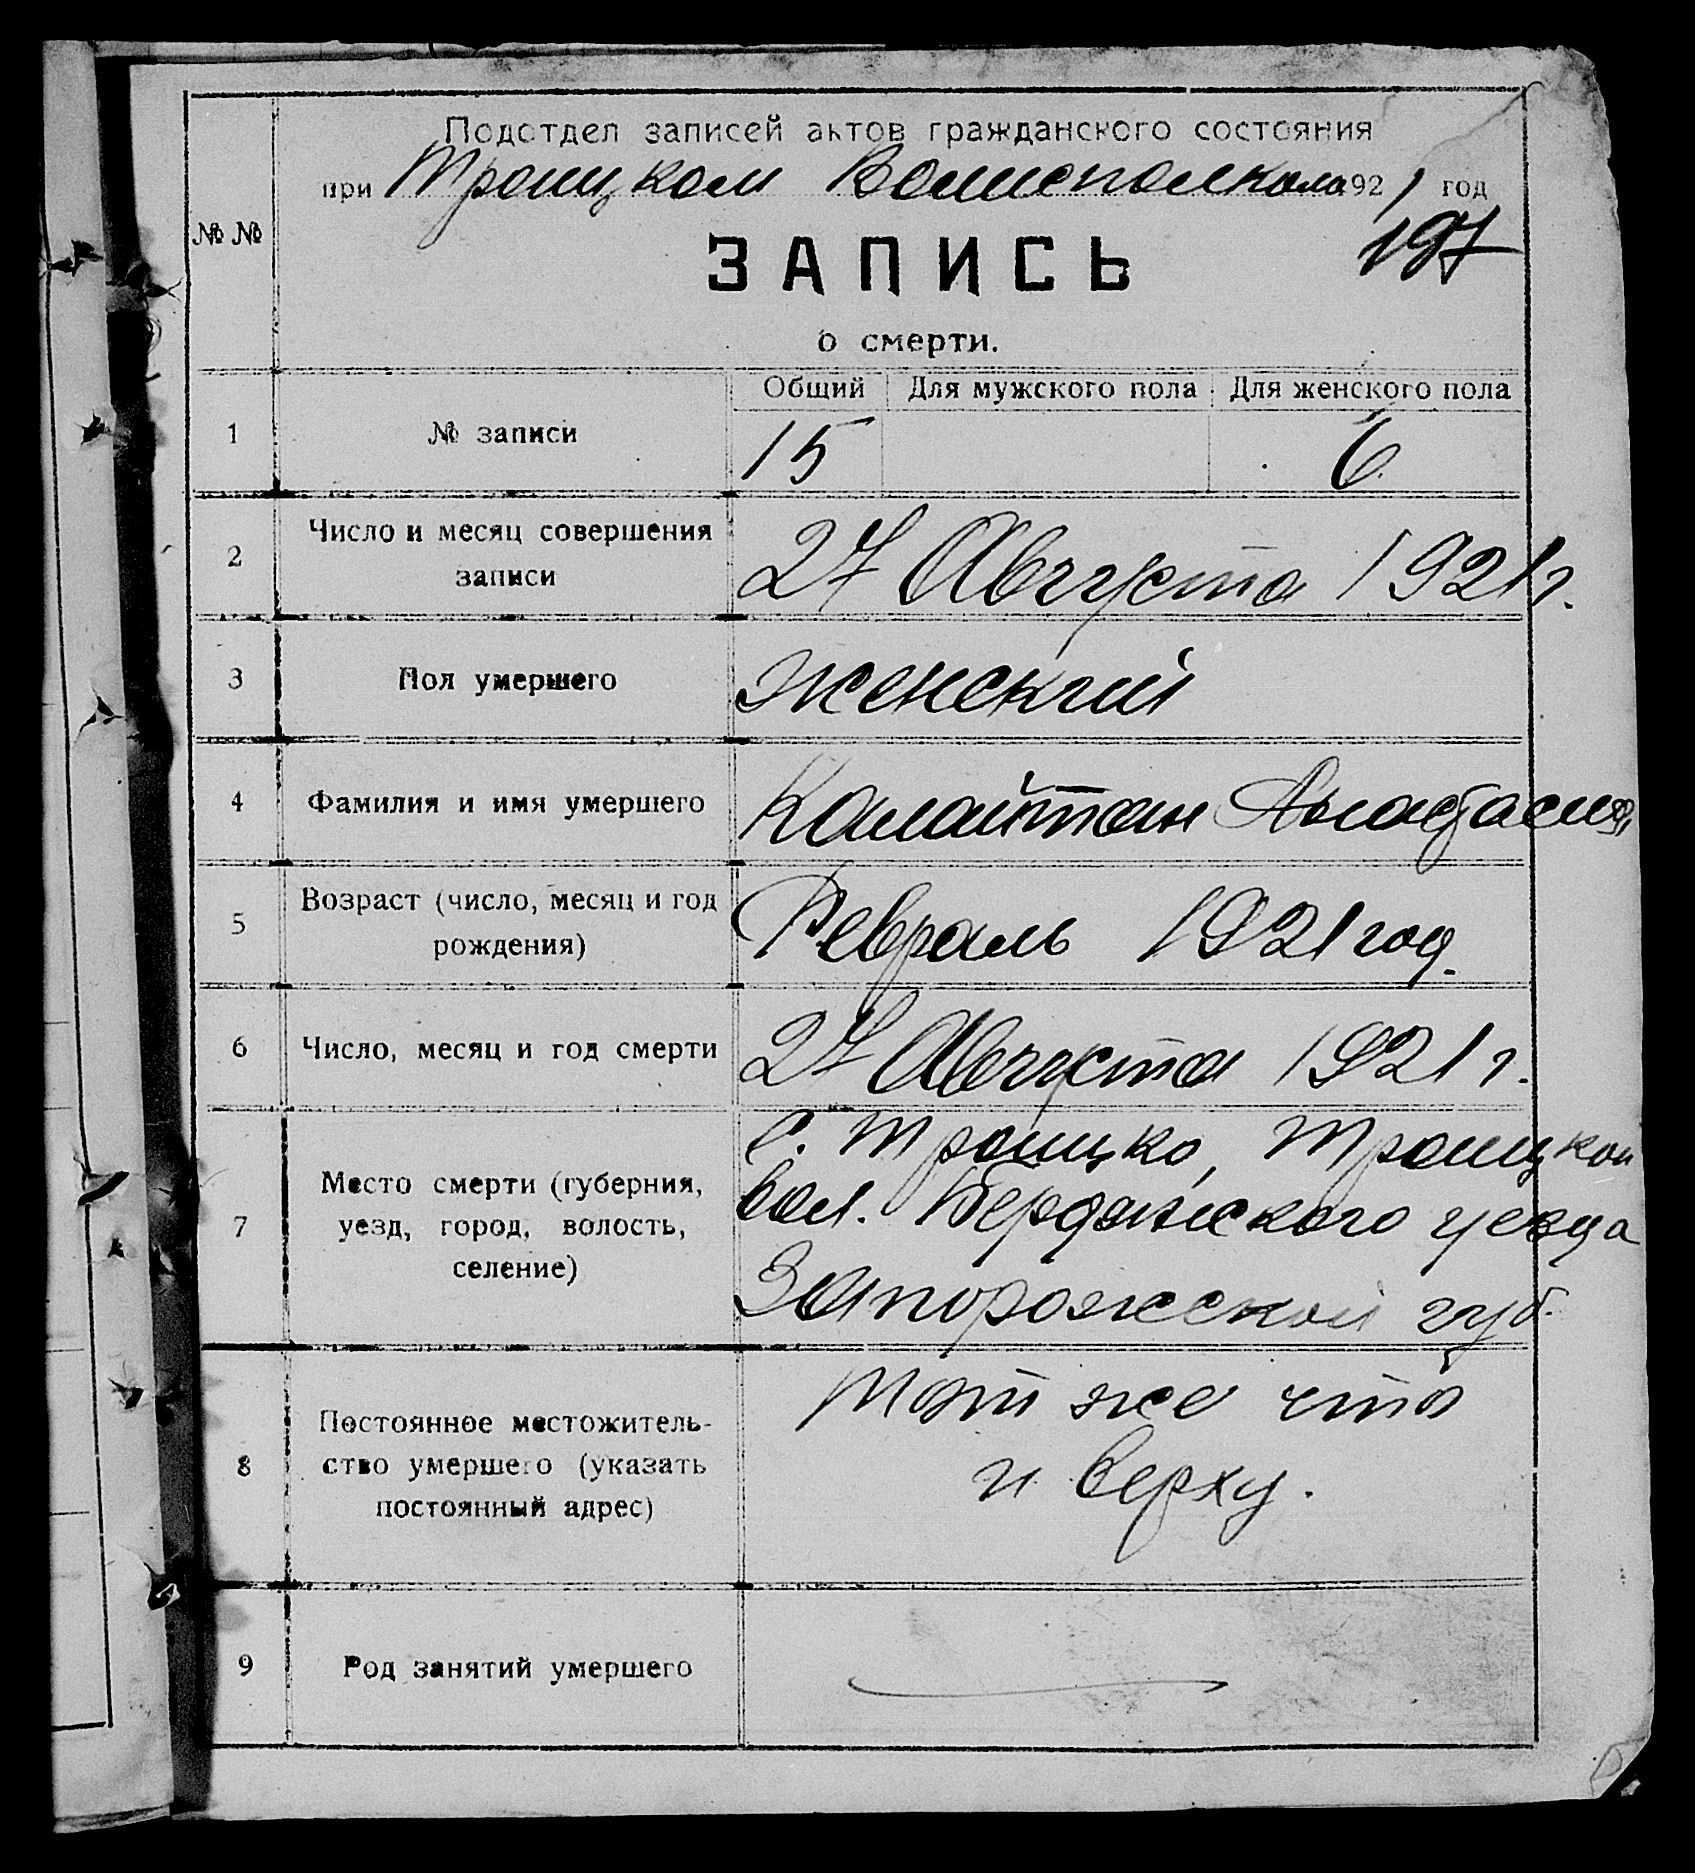 Подотдел записей актов гражданского состояния
при Троицком Волисполкоме 1921 год
197
№ №
ЗАПИСЬ
о смерти.
Общий Для мужского пола Для женского пола
1 № записи 15 6
2 Число и месяц совершения
записи
27 Августа 1921 г.
3 Пол умершего женский
4 Фамилия и имя умершего Калайтан Анастасия
5 Возраст (число, месяц и год
рождения)
Февраль 1921 год.
6 Число, месяц и год смерти 27 Августа 1921 г.
7 Место смерти (губерния,
уезд, город, волость,
селение)
С. Троицко, Троицкой
вол. Бердянского уезда
Запорожской губ.
8 Постоянное местожитель-
ство умершего (указать
постоянный адрес)
Тот же что
и вверху.
9 Род занятий умершего